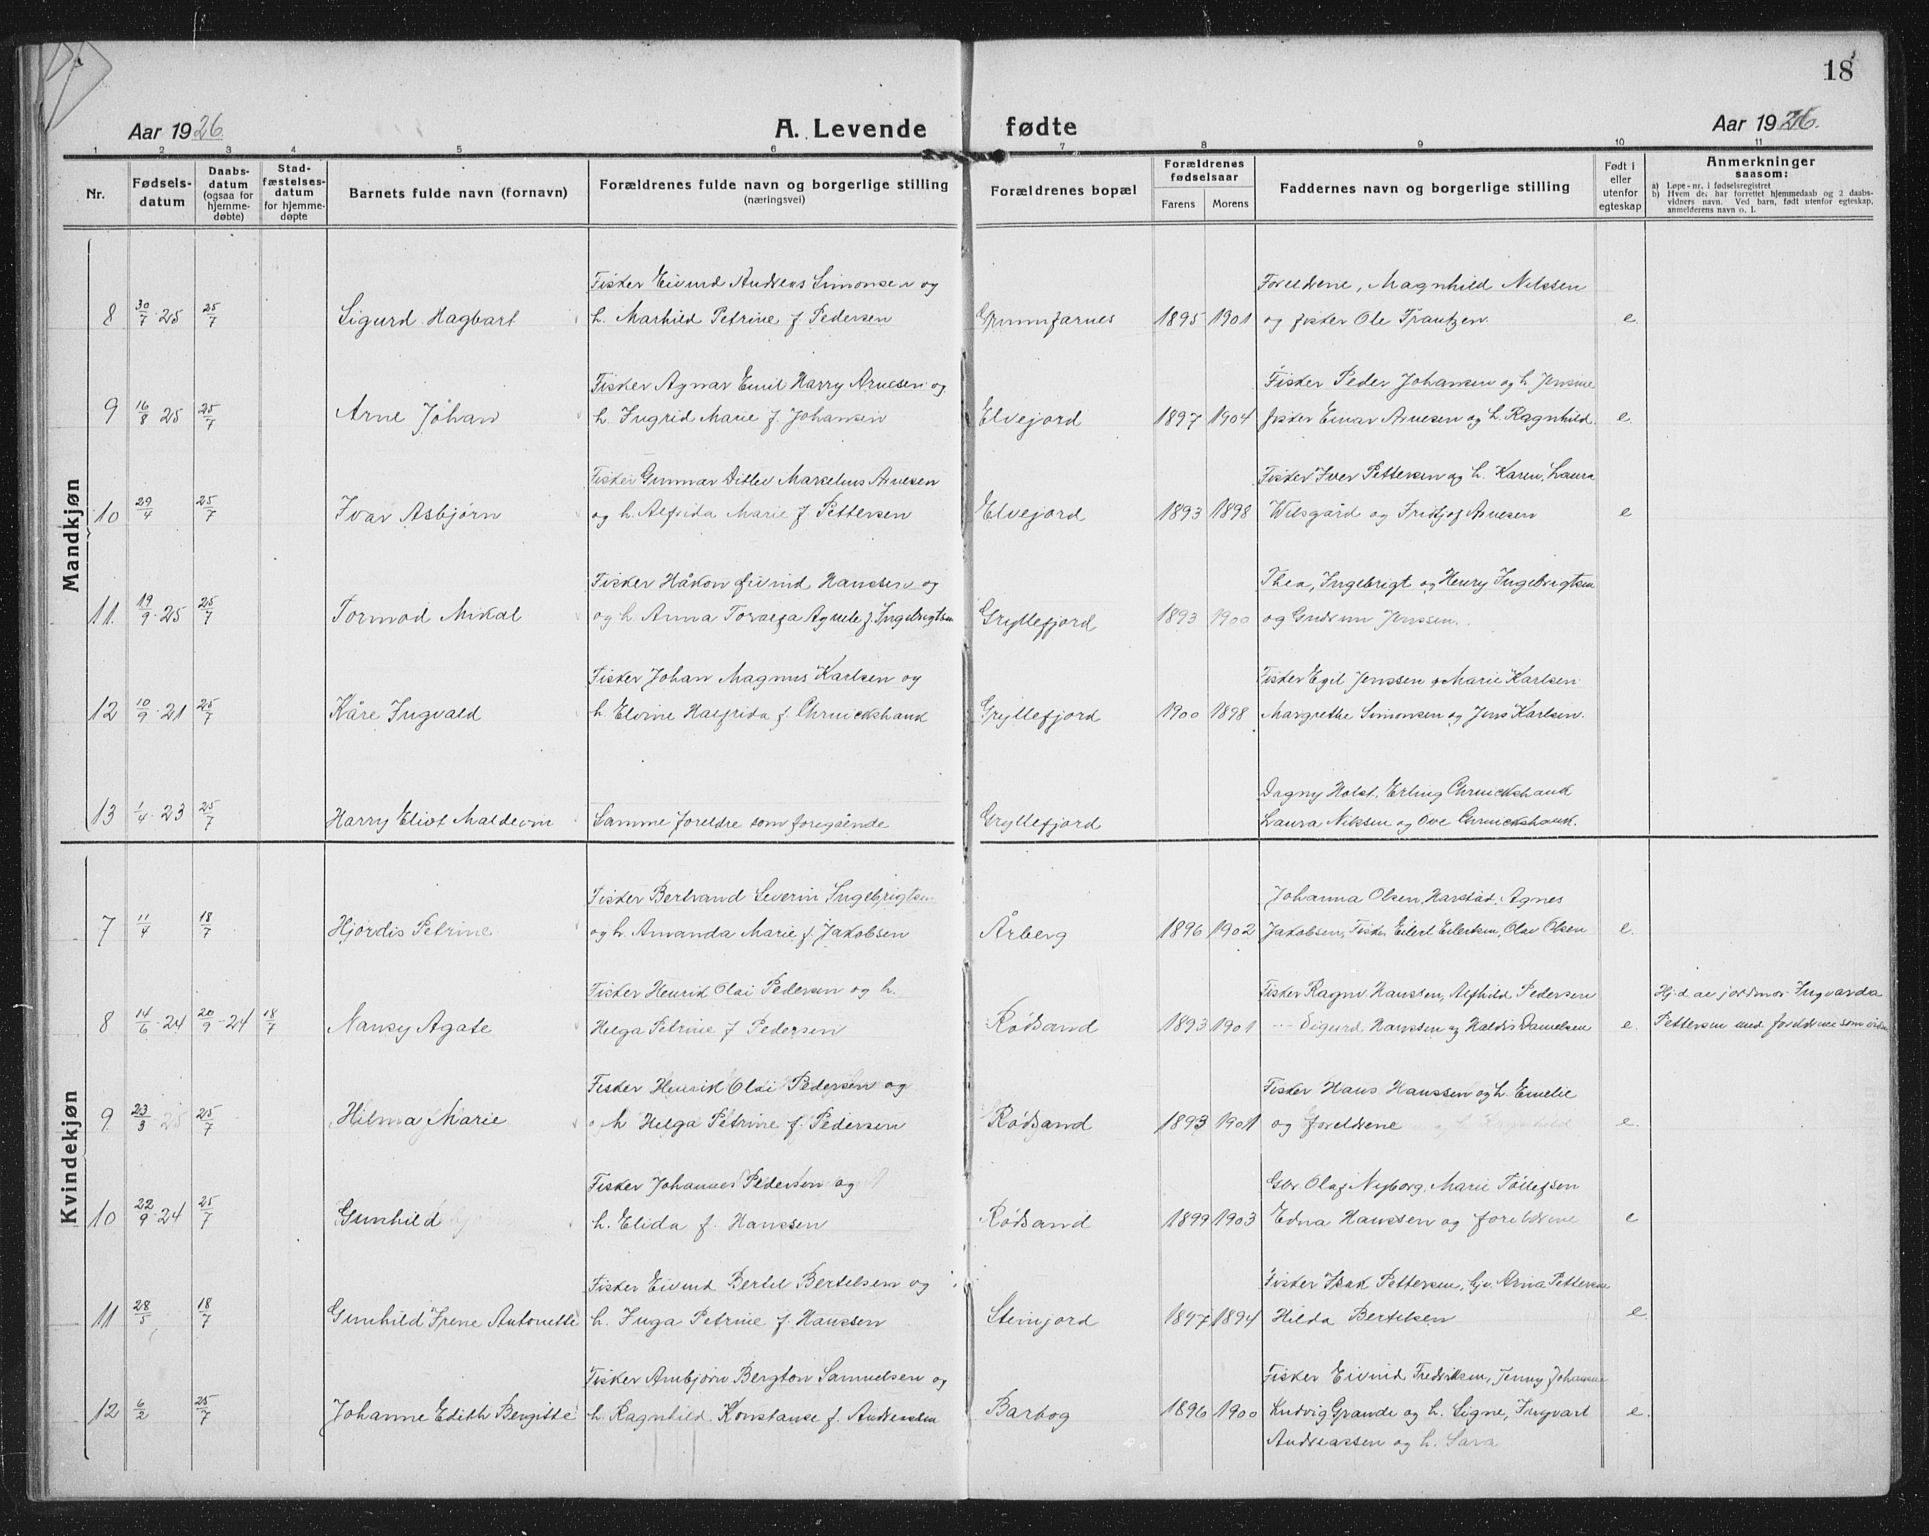 18
Aar 1926. A. Levende fødte Aar 1926.
1 2 3 4 5 6 7 8 9 10 11
Nr. Fødselsdatum Daabsdatum (ogsaa for hjemmedøbte) Stadfæstelsesdatum for hjemmedøpte Barnets fulde navn (fornavn) Forældrenes fulde navn og borgerlige stilling (næringsvei) Forældrenes bopæl Forældrenes fødselsaar Farens Morens Faddernes navn og borgerlige stilling Født i eller utenfor egteskap Anmerkninger saasom:
a) Løpe-nr. i fødselsregistret
b) Hvem der har forrettet hjemmedaab og 2 daabsvidners navn. Ved barn, født utenfor egteskap, anmelderens navn o. l.
Mandkjøn
Fisker Eivind Andreas Simonsen og Foreldrene, Magnhild Nilssen
8 30/7 25 25/7 Sigurd Hagbart h. Marhild Petrine f. Pedersen Grunnfarnes 1895 1901 og fisker Ole Frantzen. e.
Fisker Agnar Emil Harry Arnesen og Fisker Peder Johansen og h. Jensine
9 16/8 25 25/7 Arne Johan h. Ingrid Marie f. Johansen Elvejord 1897 1904 fisker Einar Arnesen og h. Ragnhild. e.
Fisker Gunnar Ditlev Marselius Arnesen Fisker Iver Pettersen og h. Karen, Laura
10 29/4 25/7 Ivar Asbjørn og h. Alfrida Marie f. Pettersen Elvejord 1893 1898 Wilsgård og Fridtjof Arnesen e
Fisker Håkon Eivind Hanssen og Thea, Ingebrigt og Henry Ingebrigtsen
11. 19/9 25 25/7 Tormod Mikal og h. Anna Torvalfa Agnete f. Ingebrigtsen Gryllefjord 1893 1900 og Gudrun Jenssen.
Fisker Johan Magnus Karlsen og Fisker Egil Jenssen, Marie Karlsen
12 10/9 21 25/7 Kåre Ingvald h. Elvine Halfrida f. Chruickshank Gryllefjord 1900 1898 Margrethe Simonsen og Jens Karlsen.
Dagny Holst, Erling Chruickshank
13 1/4 23 25/7 Harry Eliot Maldevin Samme foreldre som foregående Gryllefjord Laura Nilssen og Ove Chruickshank.
Kvindekjøn
Fisker Bertrand Severin Ingebrigtsen Johanna Olsen, Harstad, Agnes
7 11/4 18/7 Hjördis Petrine og h. Amanda Marie f. Jakobsen Årberg 1896 1902 Jakobsen, Fisker Eilert Eilertsen, Olav Olsen e.
Fisker Henrik Olai Pedersen og h. Fisker Ragnv Hanssen, Alfhild Pedersen Hj.d av jordmor Ingvarda
8 14/6 24 20/9 - 24 18/7 Nansy Agate Helga Petrine f. Pedersen Rödsand 1893 1901 Sigurd Hanssen og Haldis Danielsen e. Pettersen med foreldrene som
Fisker Henrik Olai Pedersen og Fisker Hans Hanssen og h. Emelie
9 23/3 25 25/7 Hilma Marie h Helga Petrine f. Pedersen Rödsand 1893 1901 og foreldrene e.
Fisker Johannes Pedersen og Gbr. Olaf Nyborg, Marie Tollefsen
10 22/9 24 25/7 Gunhild h. Elida f. Hanssen Rödsand 1899 1903 Edna Hanssen og foreldrene e
Fisker Eivind Bertel Bertelsen og Fisker Isak Pettersen, Arna Pettersen
11 28/5 18/7 Gunhild Irene Antonette h. Inga Petrine f. Hanssen Steinjord 1897 1894 Hilda Bertelsen e
Fisker Arnbjörn Bergton Samuelsen og Fisker Eivind Fredriksen, Jenny Johansen
12 6/2 25/7 Johanne Edith Bergitte h. Ragnhild Konstanse f. Andreassen Barbog 1896 1900 Ludvig Grande og h. Signe, Ingvart e.
Andreassen og h. Sara